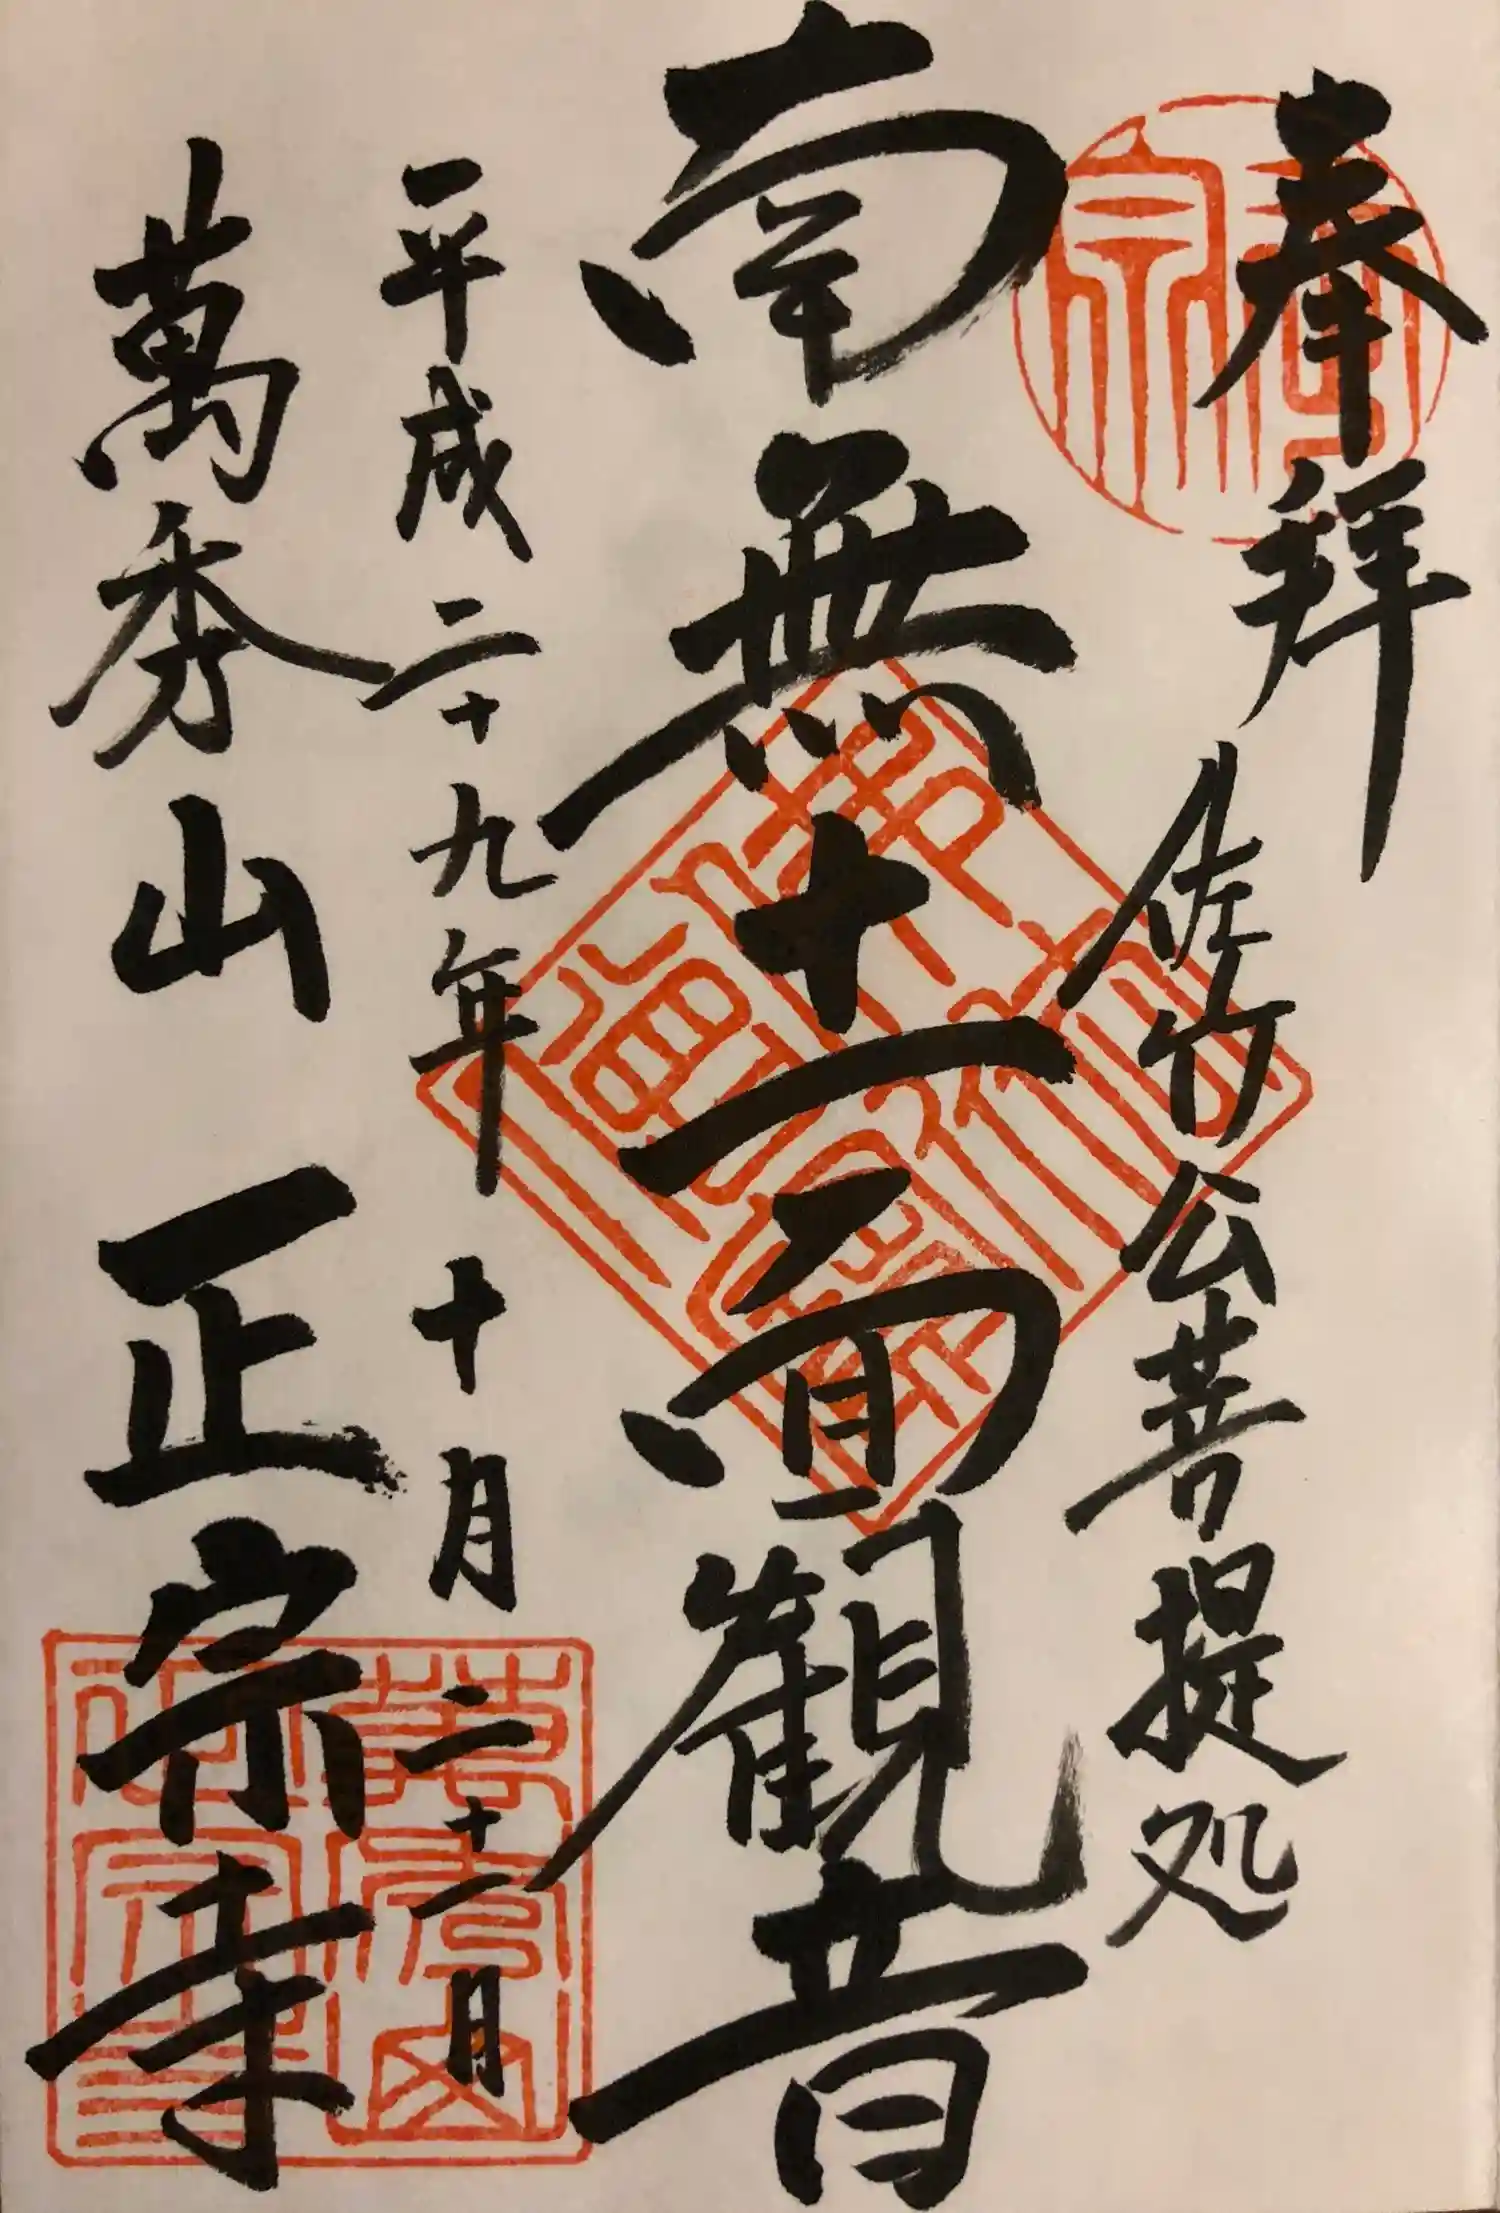 奉拝
佐竹公菩提処
南無十一面観音
平成二十九年十月二十一月
萬秀山 正宗寺